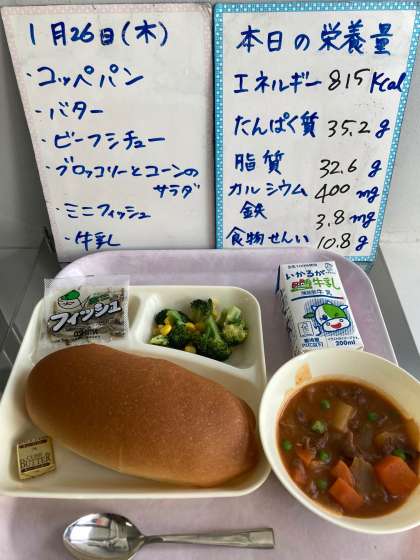 1月26日(木)
・コッペパン
・バター
・ビーフシチュー
・ブロッコリーとコーンの
サラダ
・ミニフィッシュ
・牛乳
本日の栄養量
エネルギー 815 Kcal
たんぱく質 35.2 g
脂質 32.6 g
カルシウム 400 mg
鉄 3.8 mg
食物せんい 10.8 g
フィッシュ
いかるが
牛乳
200ml
CUBE
BUTTER